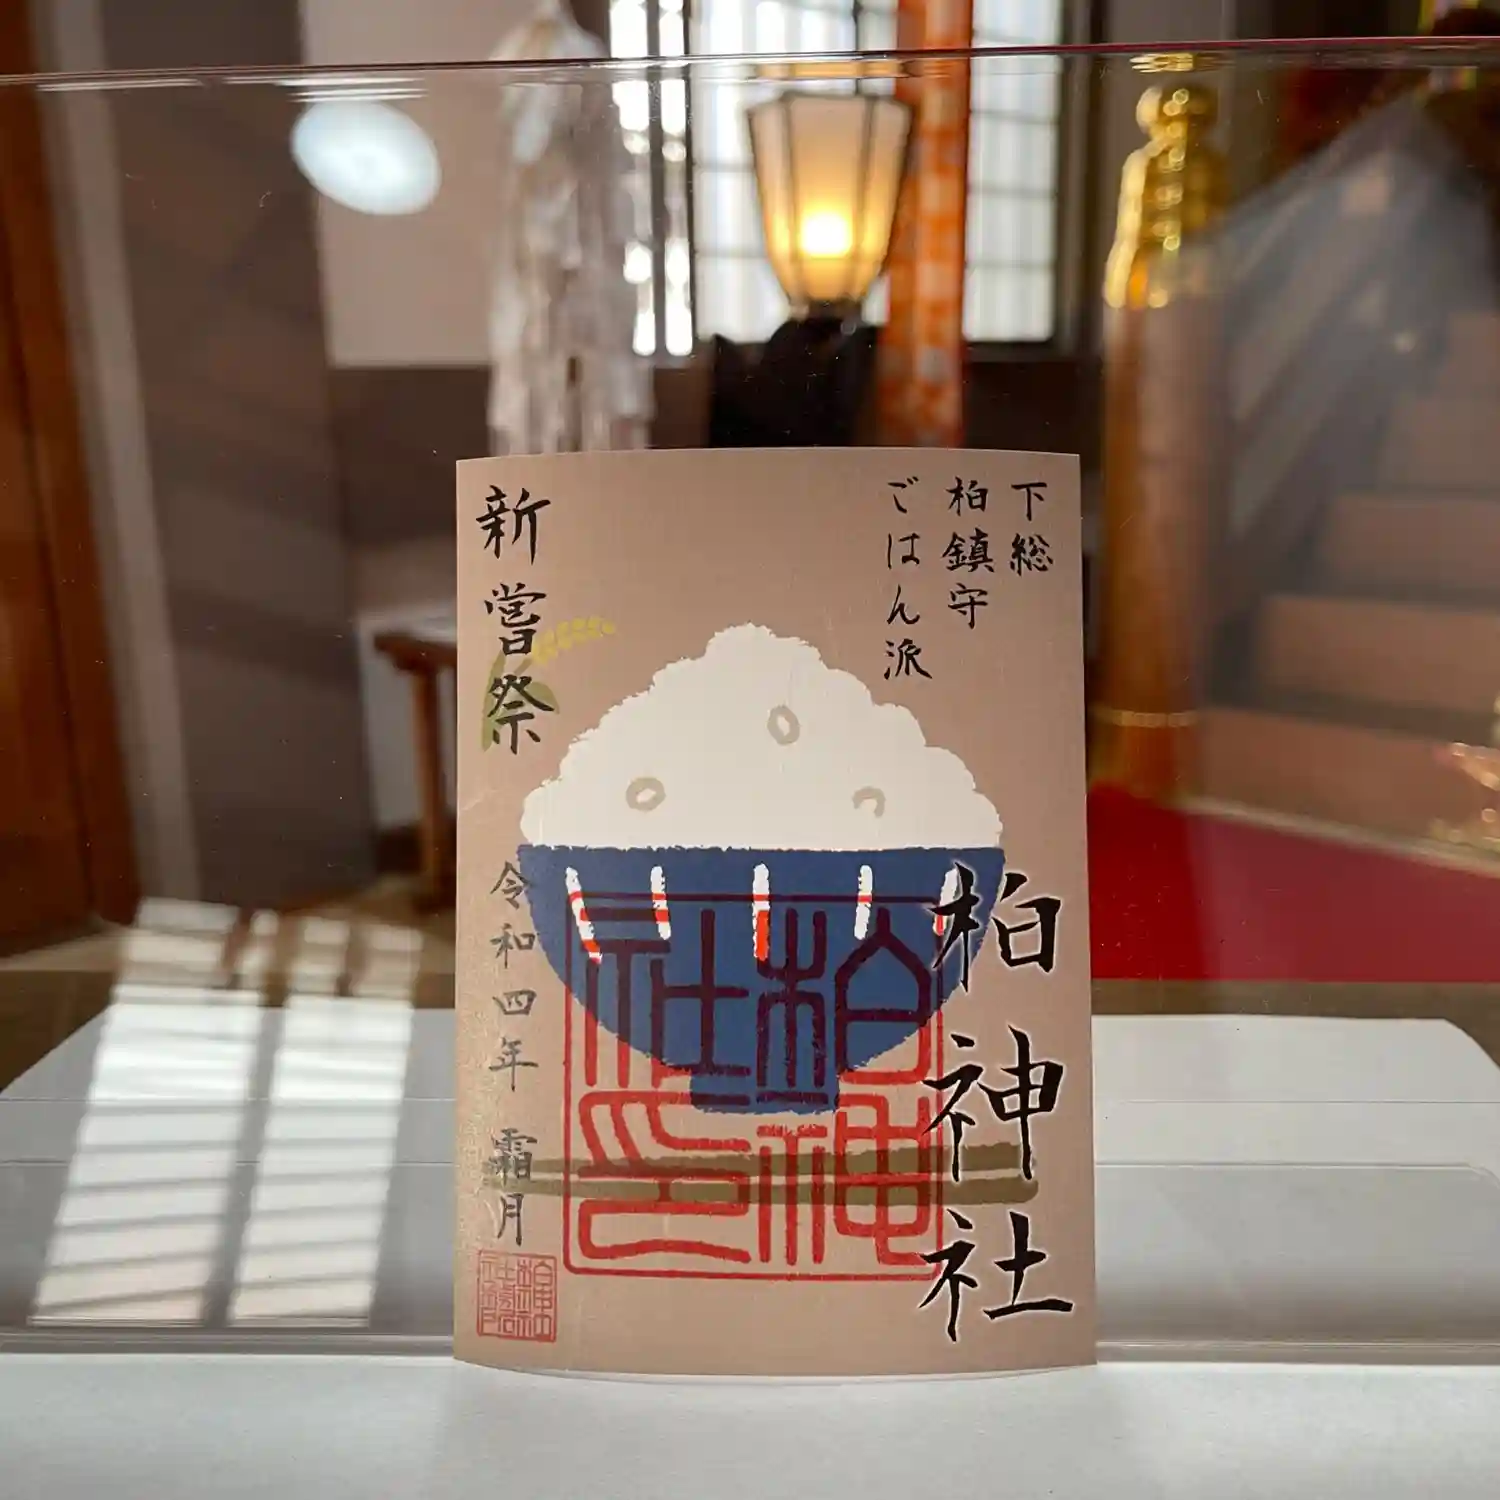 下総
柏鎮守
ごはん派
柏神社
柏神社印
新嘗祭
令和四年 霜月